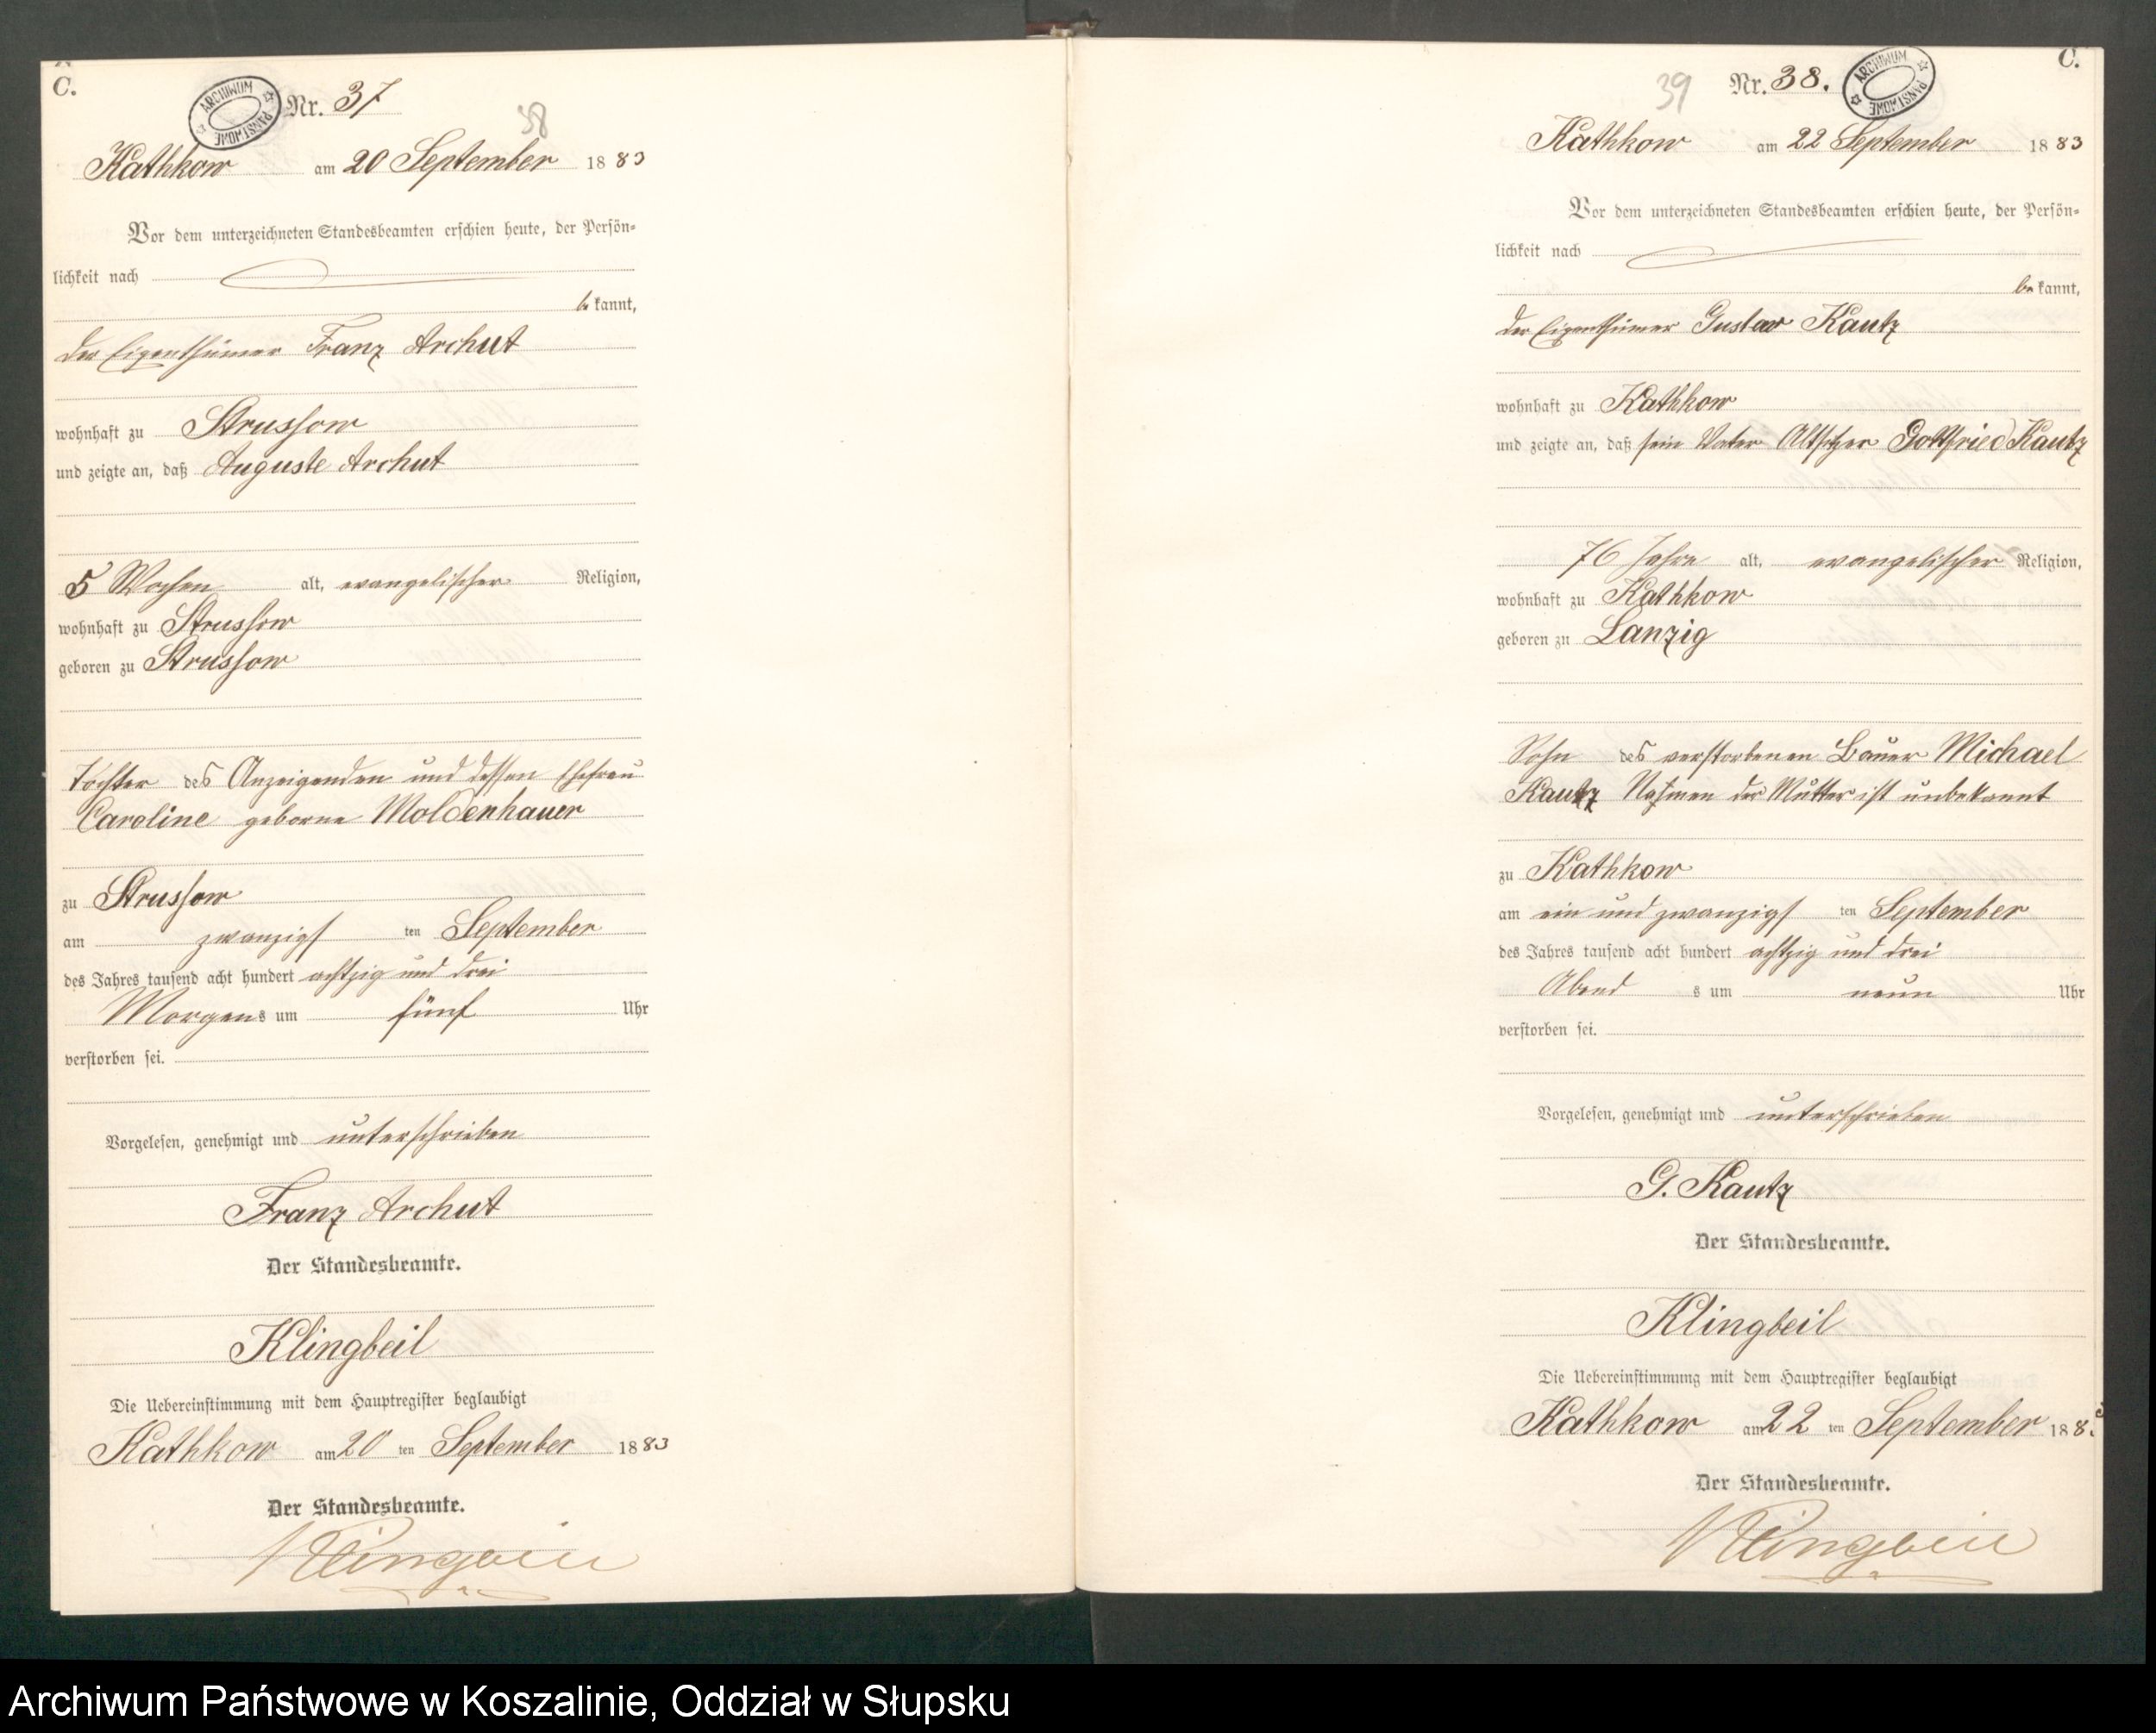 C.
ARCHIWUM PAŃSTWOWE
Nr. 37
38
Kathkow am 20 September 1883
Vor dem unterzeichneten Standesbeamten erschien heute, der Persön-
lichkeit nach
bekannt,
der Eigenthümer Franz Archut
wohnhaft zu Strussow
und zeigte an, daß Auguste Archut
5 Wochen alt, evangelischer Religion,
wohnhaft zu Strussow
geboren zu Strussow
Tochter des Anzeigenden und dessen Ehefrau
Caroline geborne Moldenhauer
zu Strussow
am zwanzigsten September
des Jahres tausend acht hundert achtzig und drei
Morgens um fünf Uhr
verstorben sei.
Vorgelesen, genehmigt und unterschrieben
Franz Archut
Der Standesbeamte.
Klingbeil
Die Uebereinstimmung mit dem Hauptregister beglaubigt
Kathkow am 20 ten September 1883
Der Standesbeamte.
Klingbeil
C.
39
Nr. 38.
ARCHIWUM PAŃSTWOWE
Kathkow am 22 September 1883
Vor dem unterzeichneten Standesbeamten erschien heute, der Persön-
lichkeit nach
bekannt,
der Eigenthümer Gustav Kautz
wohnhaft zu Kathkow
und zeigte an, daß sein Vater Altsitzer Gottfried Kautz
76 Jahre alt, evangelischer Religion,
wohnhaft zu Kathkow
geboren zu Lanzig
Sohn des verstorbenen Bauer Michael
Kautz Nahmen der Mutter ist unbekannt
zu Kathkow
am ein und zwanzigsten September
des Jahres tausend acht hundert achtzig und drei
Abends um neun Uhr
verstorben sei.
Vorgelesen, genehmigt und unterschrieben
G. Kautz
Der Standesbeamte.
Klingbeil
Die Uebereinstimmung mit dem Hauptregister beglaubigt
Kathkow am 22 ten September 1883
Der Standesbeamte.
Klingbeil
Archiwum Państwowe w Koszalinie, Oddział w Słupsku